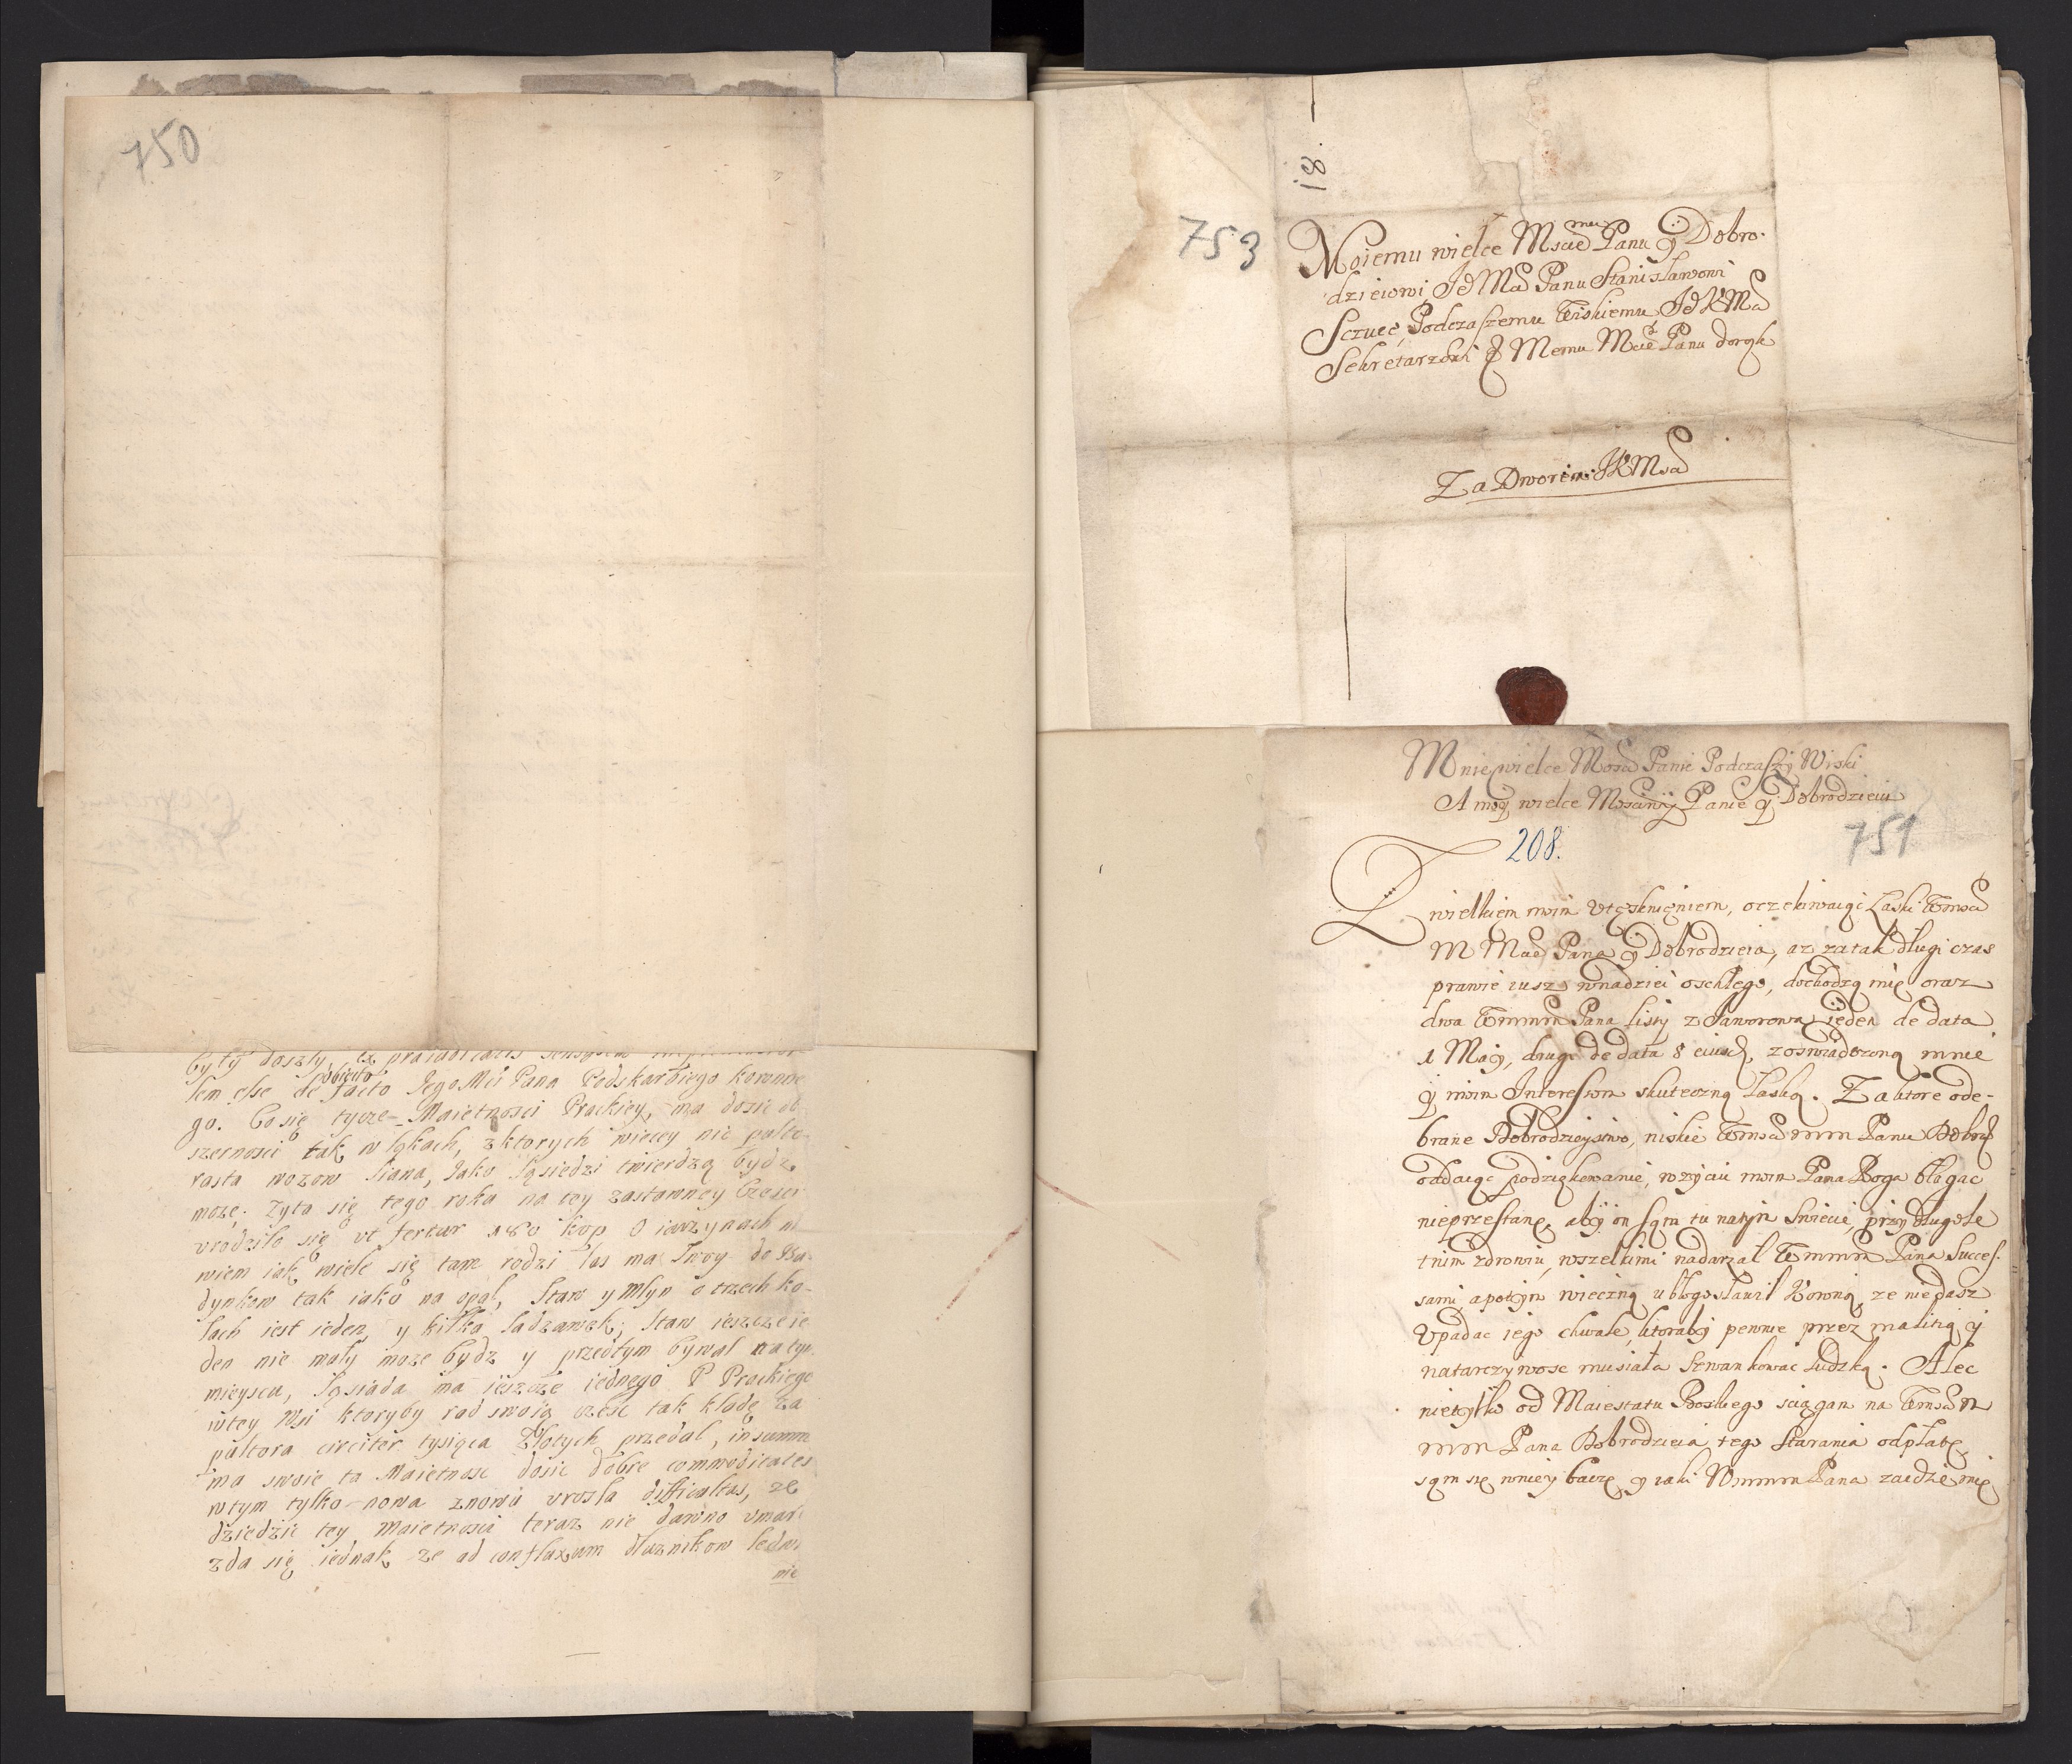 750
były doszły, ex
sem esse de facto objecto Jego Mci Pana Podskarbiego koronne
go. Co się tycze Maietnosci Prackiey, ma dosić ob
szernosci tak w łąkach, z ktorych wiecey nić pułto-
rasta wozow siana, Jako Sąsiedzi twierdzą bydz
moze; Zyta się tego roku na tey zastawney Czesci
vrodziło się vt fertur 180 kop O iarzynach ni
wiem iak wiele się tam rodzi las ma swoy do Bu
dynkow tak iako na opał, Staw y Młyn o trzech ko-
łach iest ieden y kilka sadzawek; Staw ieszcze ie
den nie mały moze bydz y przedtym bywał na tym
mieyscu, Sąsiada ma ieszcze iednego P Prackiego
w tey Wsi ktoryby rad swoią czesc tak kładę za
pułtora circiter tysiąca Złotych przedał, in summa
ma swoie ta Maietnosc dosic dobre commoditates
w tym tylko nowa znowu vrosła difficultas, ze
dziedzic tey Maietnosci teraz nie dawno vmarł
zda się iednak ze ad confluxum dłuznikow ledwi
nie
18.
753
Moiemu wielce Mscie mu Panu y Dobro-
dzieiowi Je Msci Panu Stanisławowi
Szczuce, Podczaszemu Wiskiemu JeKMci
Sekretarzowi y Memu Mcie Panu dorąk
Za Dworem JKMsci
Mnie wielce Mosci Panie Podczaszy Wiski
A moy wielce Mosciwy Panie y Dobrodzieiu
208.
751
Z wielkiem moim vtęsknięniem, oczekiwaiąc Łaski Wmsci
M Mcie Pana y Dobrodzieia, az za tak długi czas
prawie iusz w nadziei oschłego, dochodzą mię oraz
dwa Wmmm Pana listy z Jaworowa, ieden de data
1 Maij, drugi de data 8 eiusd, z oswiadczoną mnie
y moim Interessom skuteczną Łaską. Za ktore ode-
brane Dobrodzieystwo, niskie Wmsci mm Panu Dobrd
oddaiąc podziękowanie, w zyciu moim Pana Boga błagac
nieprzestanę, aby on sąm tu natym Swiecie, przy długole
tnim zdrowiu, wszelkimi nadarzał Wmmm Pana Succes.
sami, apotym wieczną ubłogosławił Koroną, ze niedasz
Vpadac iego chwale, ktoraby pewnie przez malitią y
natarczywosc musiała szwankowac ludzką. Alec
nietylko od Maiestatu Boskiego sciągam na Wmsci m
mm Pana Dobrodzieia, tego Starania odpłatę,
sąm się w niey baczę, y iaki Wmmm Pana zaidzie mię